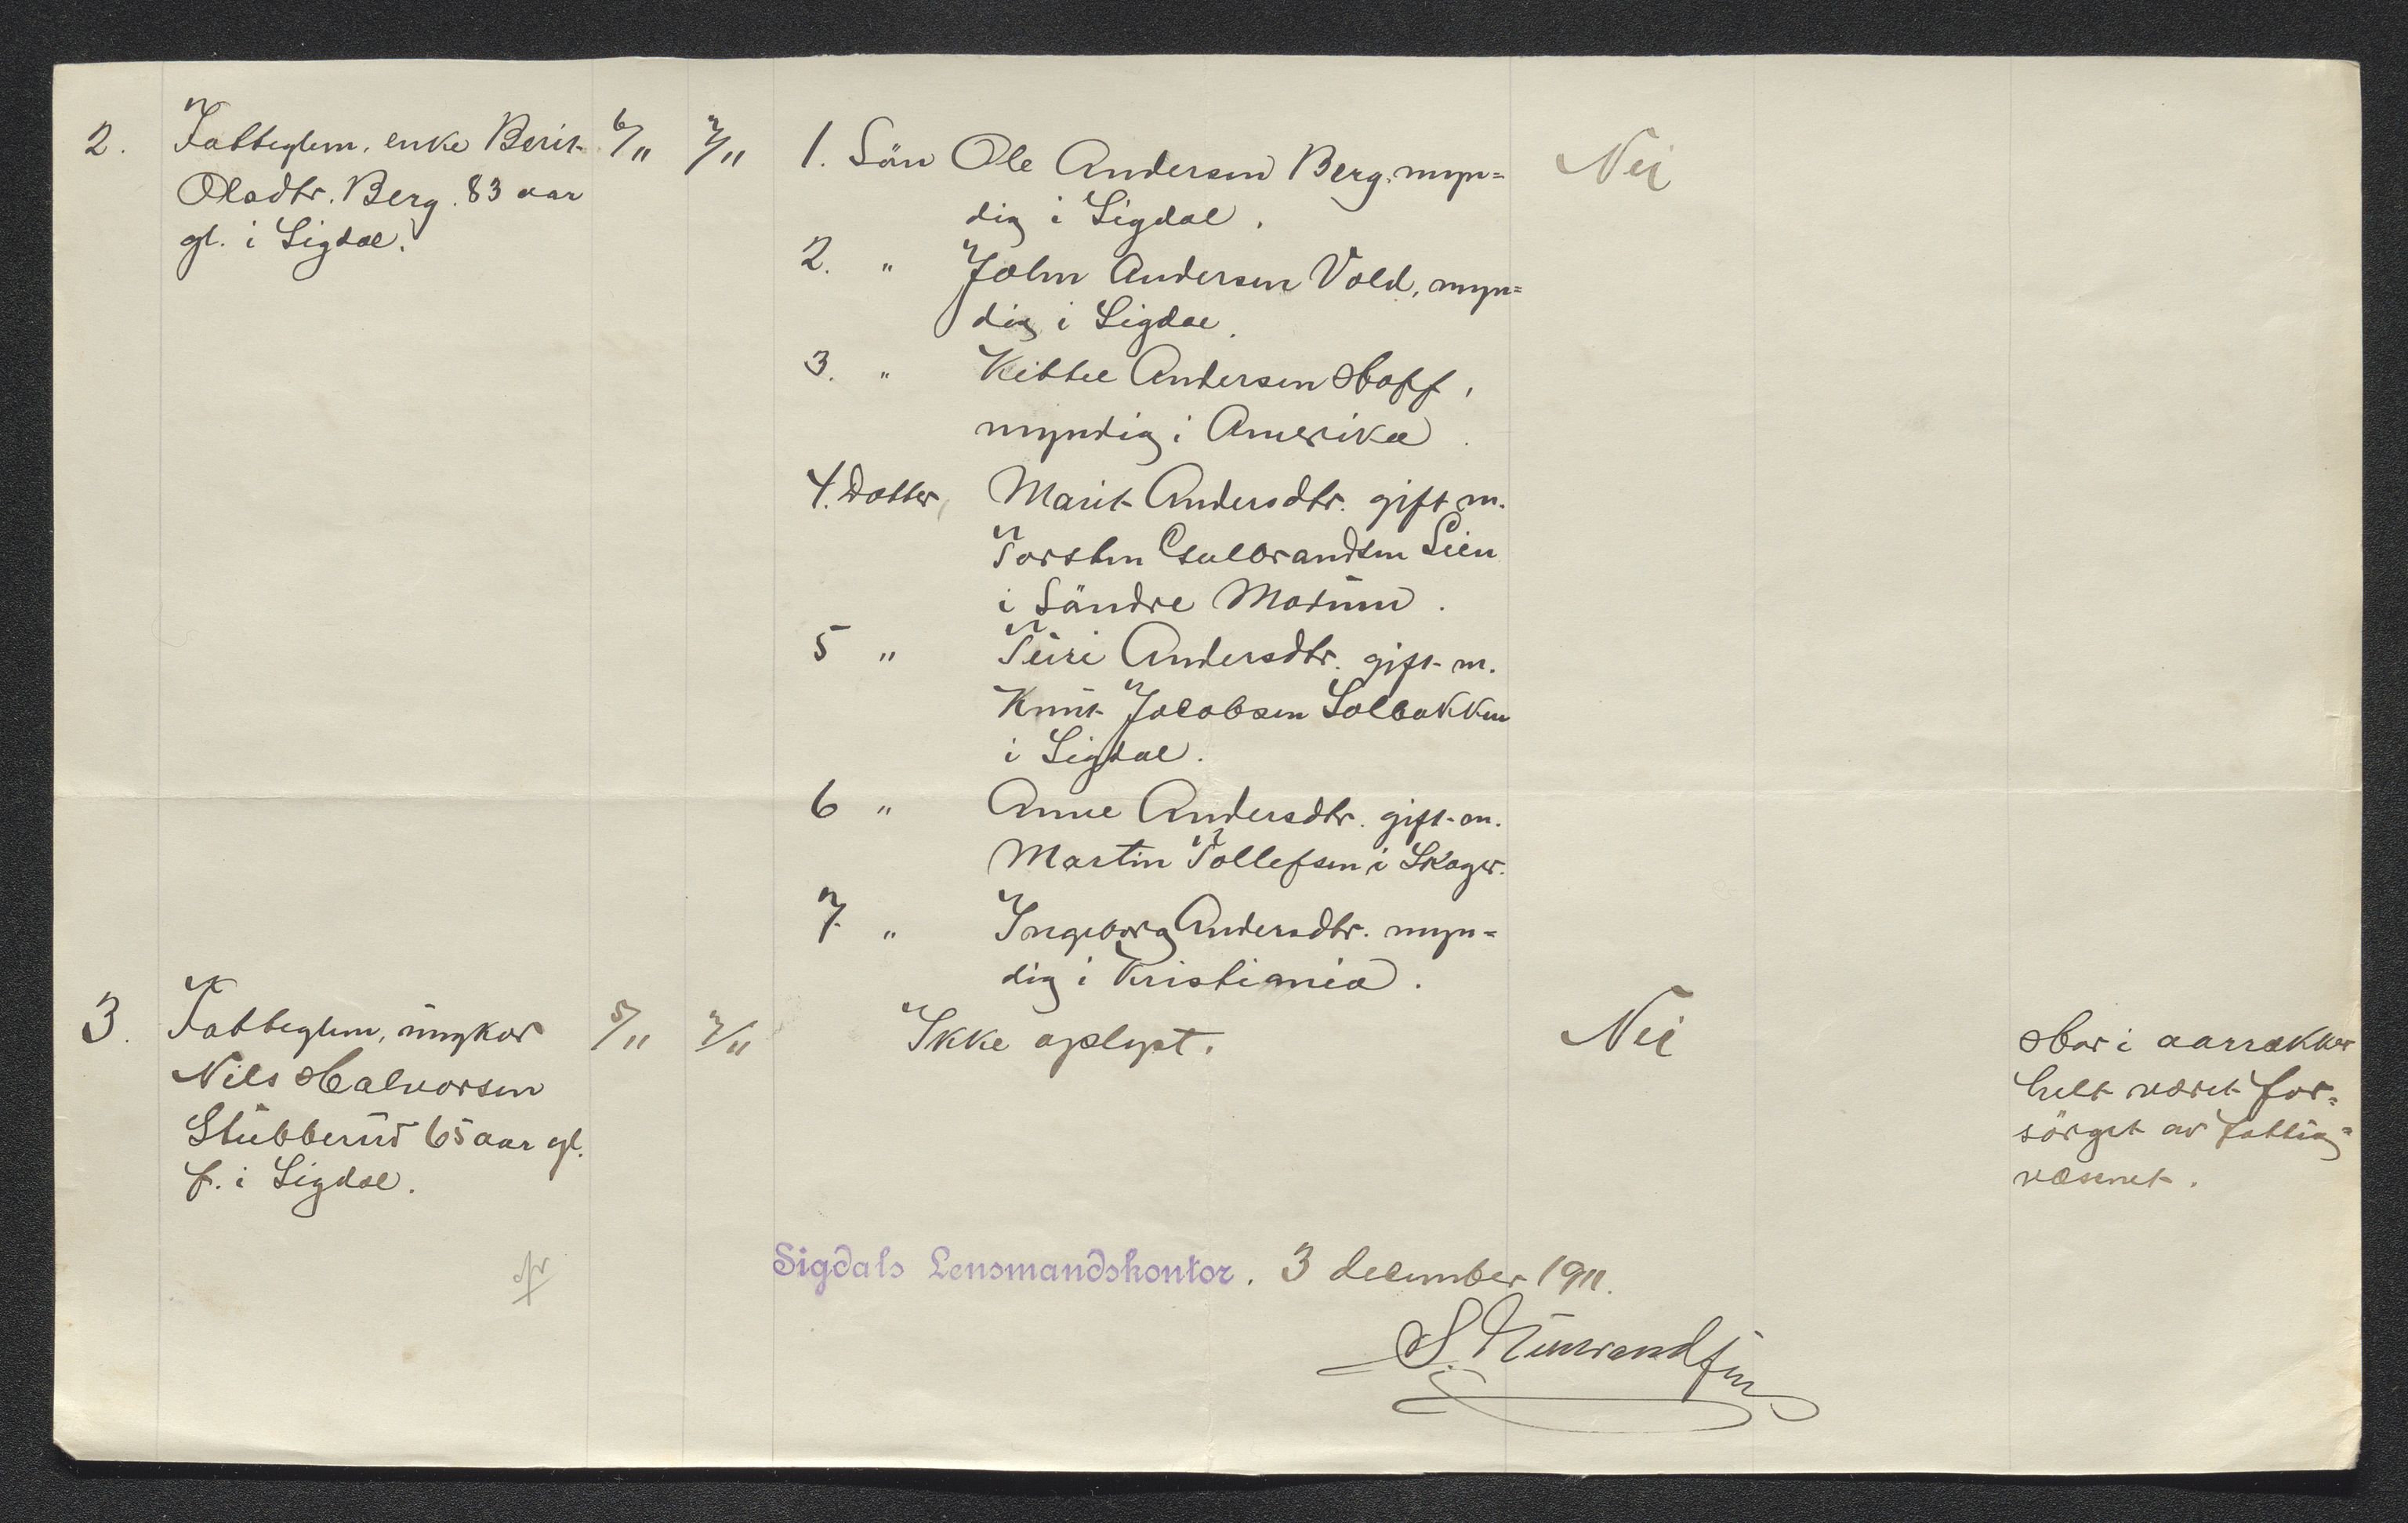 2. Fattiglem, enke Berit 6/11 7/11
Olsdtr. Berg. 83 aar
gl. i Sigdal.
1. Sön Ole Andersen Berg, myn=
dig i Sigdal.
2. " John Andersen Vold, myn=
dig i Sigdal.
3. " Kittel Andersen Hoff,
myndig i Amerika.
4. Datter, Marit Andersdtr. gift m.
Torsten Gulbrandsen Lien
i Söndre Modum.
5 " Turi Andersdtr. gift m.
Knut Jacobsen Solbakken
i Sigdal.
6 " Anne Andersdtr. gift m.
Martin Tollefsen i Skoger.
7. " Ingeborg Andersdtr. myn=
dig i Kristiania.
Nei
3. Fattiglem, ungkar 5/11 7/11
Nils Halvorsen
Stubberud 65 aar gl.
f. i Sigdal.
Ikke oplyst.
Nei
Har i aarrækker
helt været for=
sörget av fattig=
væsenet.
Sigdals Lensmandskontor. 3 december 1911.
S.